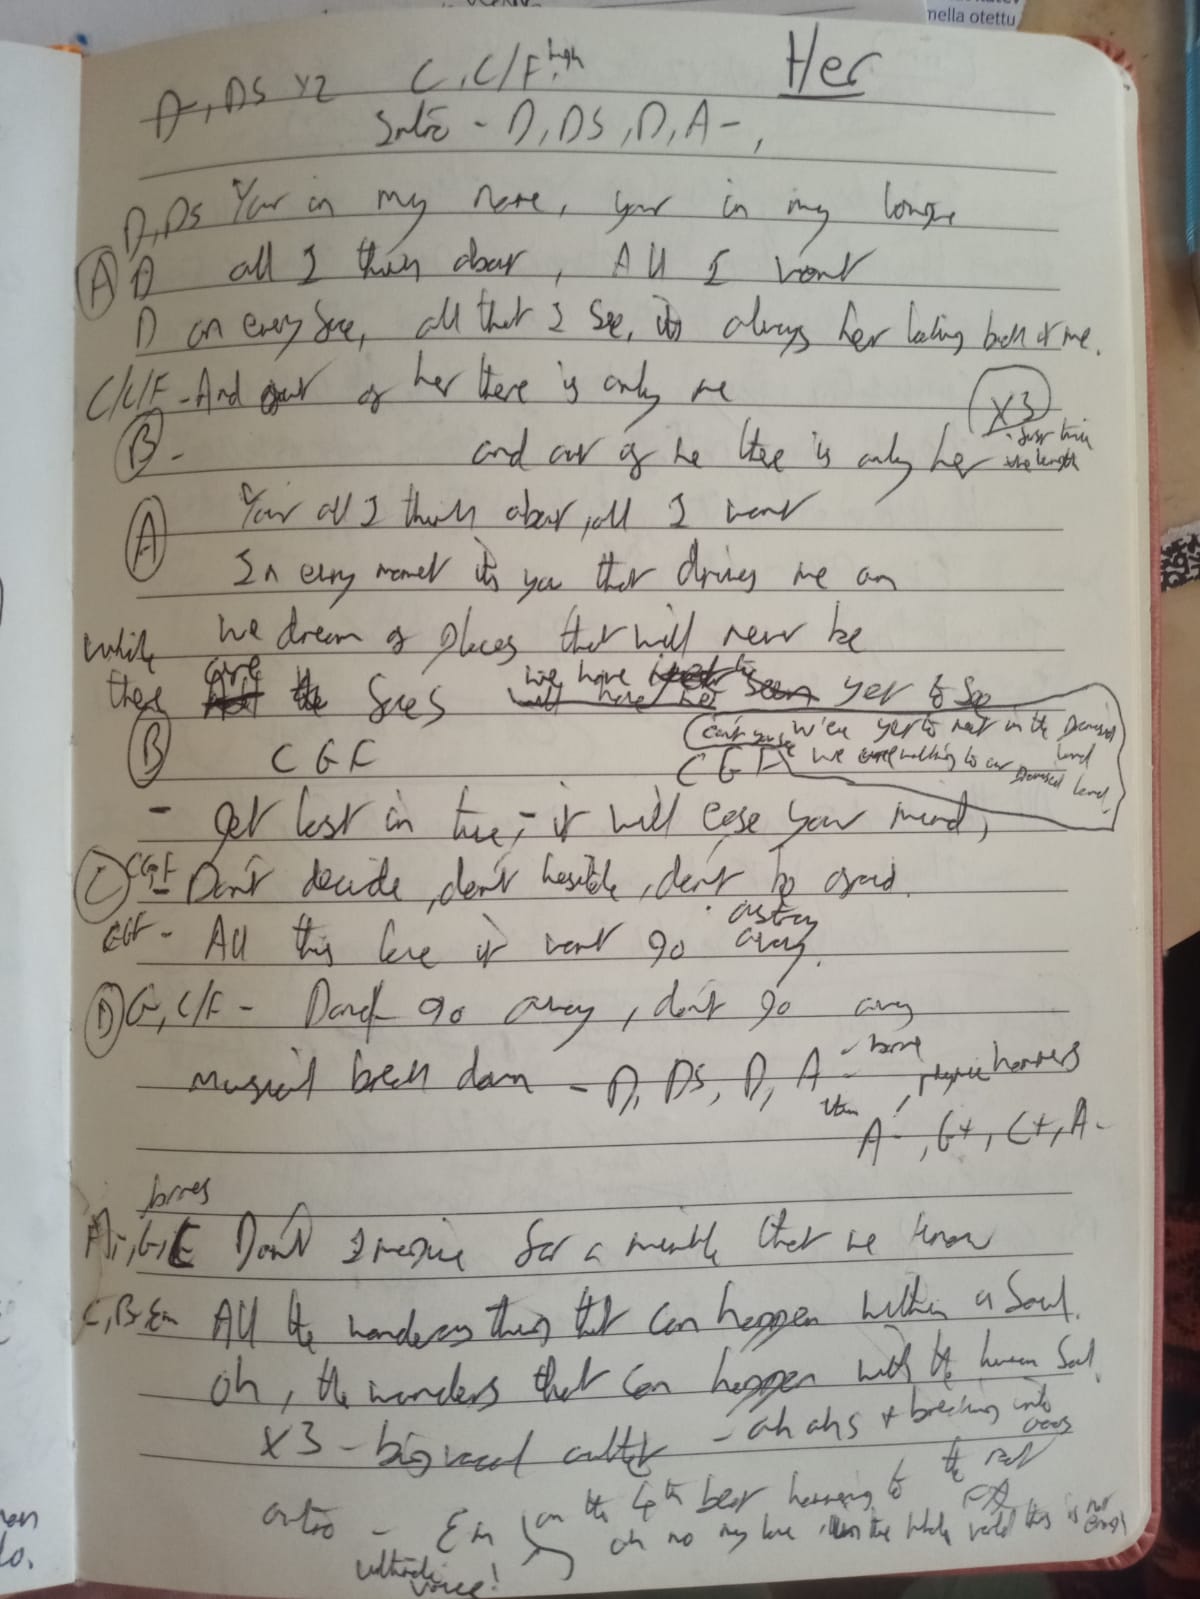 nella otettu
D-, DS x2 C, C/F high Her
Intro - D, DS, D, A-,
D, DS Your in my name, your in my
(A) D all I think about, All I want
D on every face, all that I see, it's always her looking back at me.
C/C/F - And out of her there is only me
(B) - and out of me there is only her
x3
- just twice the length
(A) Your all I think about, all I want
In every moment it's you that drives me on
while We dream of places that will never be
there are the faces we have yet to see
(B) C G F
can't you see we're yet to meet in the Promised land
C G F we are walking to our promised land.
- get lost in time, - it will ease your mind,
(C) CGF - Don't decide, don't hesitate, don't be afraid.
CGF - All this love it won't go astray
away.
(D) G, C/F - Don't go away, don't go away
Musical break down - D, DS, D, A-
then A-, G+, C+, A-
A-, G, C Don't Imagine for a minute that we know
C, B-, Em All the wonderous things that can happen within a Soul.
oh, the wonders that can happen with the human Soul.
x3 - big vocal - ah ahs + breaking into
outro - Em on the 4th beat to the rest
oh no my love in the whole world this is not enough
voice!